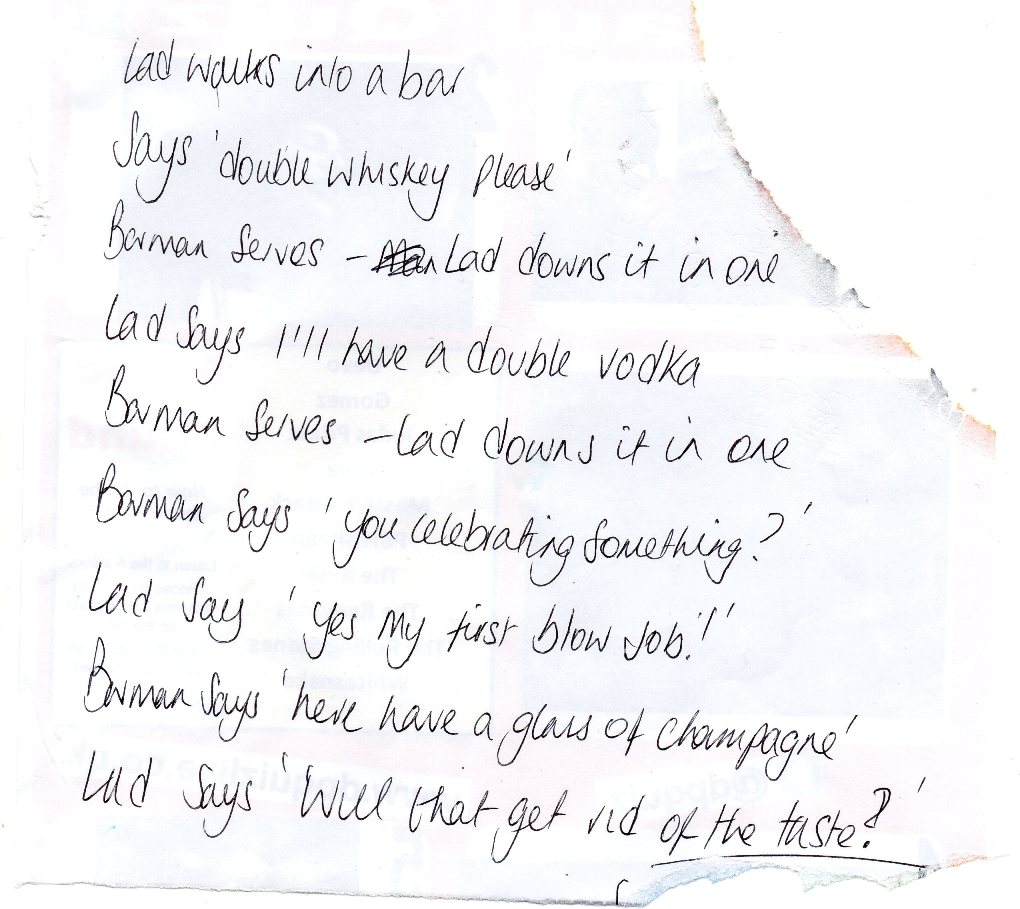 Lad walks into a bar
Says 'double whiskey please'
Barman serves – Lad downs it in one
Lad says I'll have a double vodka
Barman serves – Lad downs it in one
Barman says 'you celebrating something?'
Lad say 'yes my first blow job!'
Barman says 'here have a glass of champagne'
Lad says 'will that get rid of the taste?'